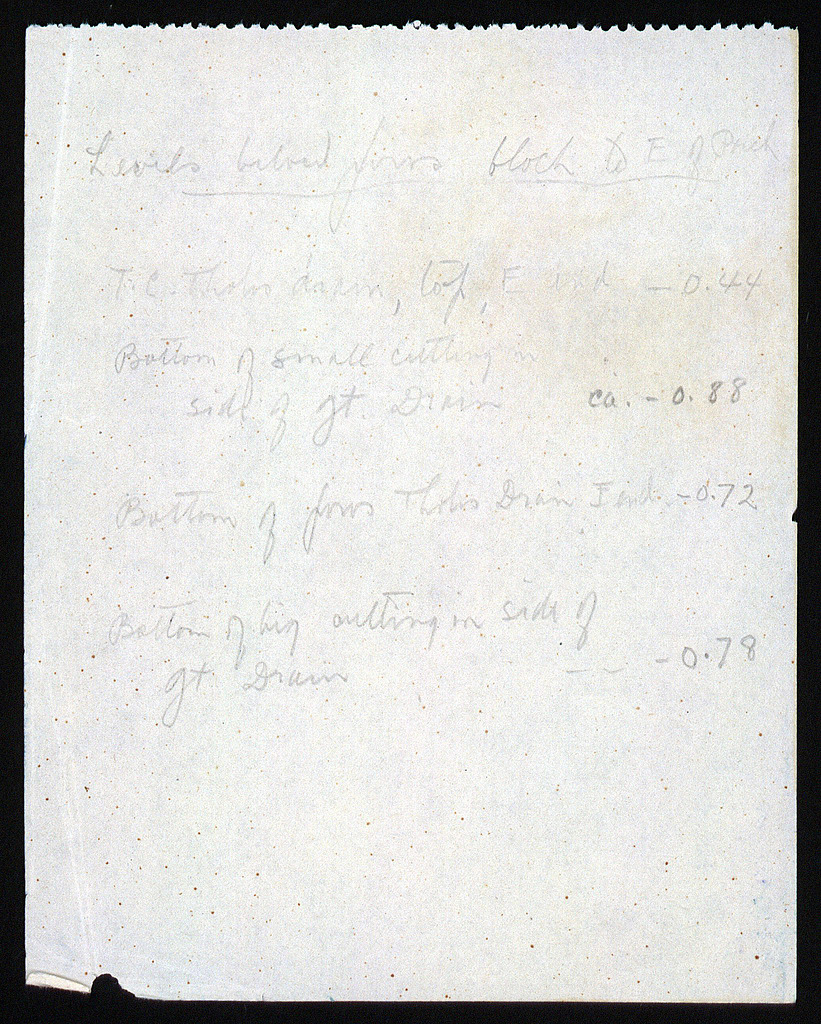 Levels below poros block to E of Porch
T.C. Tholos drain, top, E end — 0.44
Bottom of small cutting in
side of gt. Drain ca. - 0.88
Bottom of poros Tholos Drain E end - 0.72
Bottom of big cutting in side of
gt Drain — — - 0.78